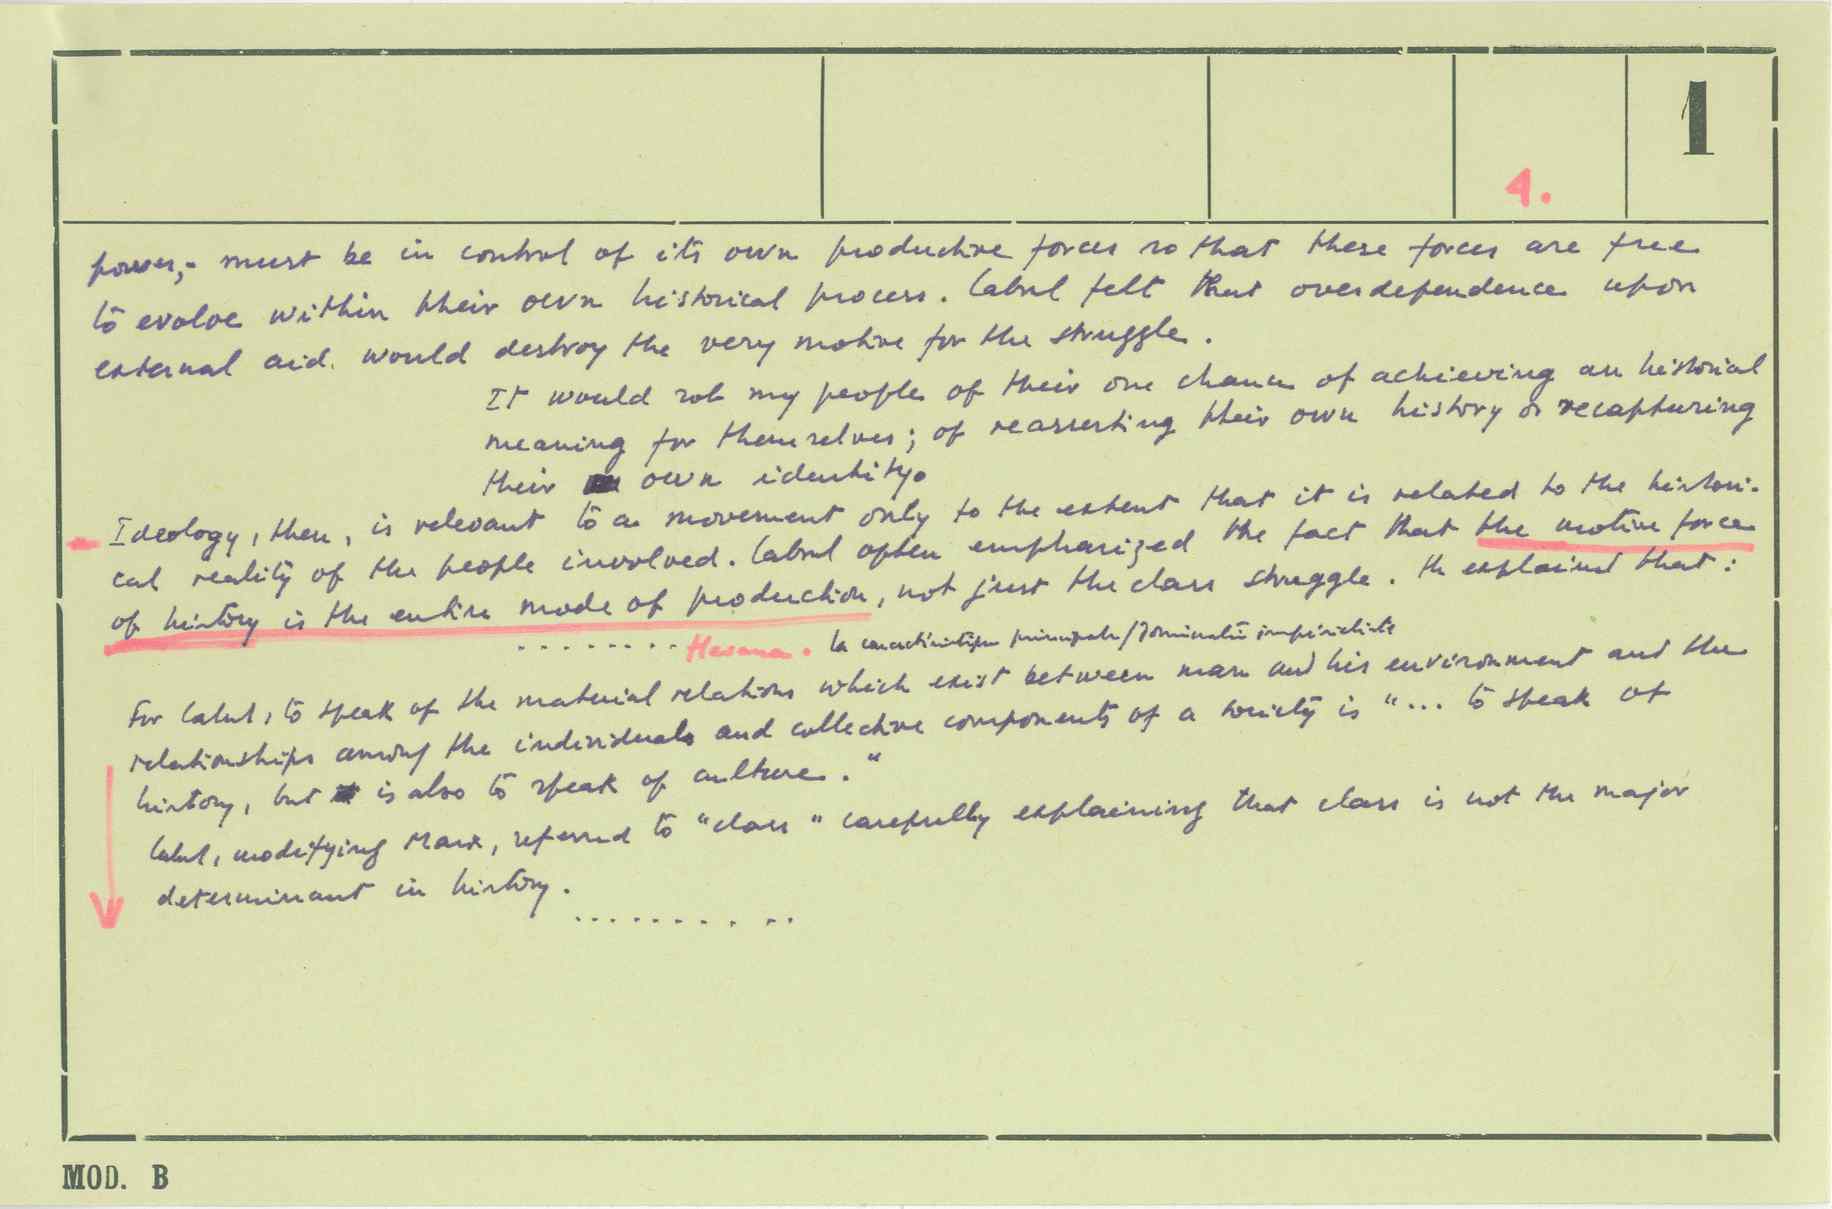 1
4.
power,- must be in control of its own productive forces so that these forces are free
to evolve within their own historical process. Cabral felt that overdependence upon
external aid. would destroy the very motive for the struggle.
It would rob my people of their one chance of achieving an historical
meaning for themselves; of reasserting their own history or recapturing
their own identity.
Ideology, then, is relevant to a movement only to the extent that it is related to the histori-
cal reality of the people involved. Cabral often emphasized the fact that the motive force
of history is the entire mode of production, not just the class struggle. He explained that:
........ Havana. la caractéristique principale/Dominatie impérialiste
For Cabral, to speak of the material relations which exist between man and his environment and the
relationships among the individuals and collective components of a society is "... to speak of
history, but is also to speak of culture."
Cabral, modifying Marx, referred to "class" carefully explaining that class is not the major
determinant in history.
..........
MOD. B